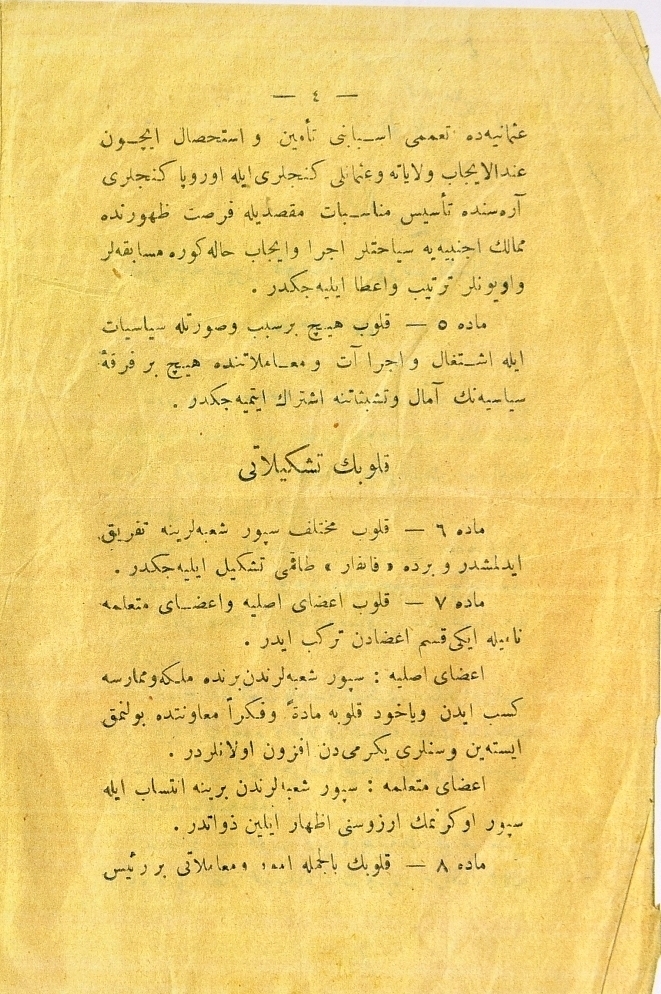 — ٤ —
عثمانیه‌ده تعممی اسبابنی تأمین و استحصال ایچون
عندالایجاب ولایاته وعثمانلی کنجلری ایله اوروپا کنجلری
آره‌سنده تأسیس مناسبات مقصدیله فرصت ظهورنده
ممالك اجنبیه‌یه سیاحتلر اجرا وایجاب حاله کوره مسابقه‌لر
واویونلر ترتیب واعطا ایلیه‌جکدر .
ماده ٥ — قلوب هیچ برسبب وصورتله سیاسیات
ایله اشتغال واجرا آت ومعاملاتنده هیچ بر فرقهٔ
سیاسیه‌نك آمال وتشبثاتنه اشتراك ایتمیه‌جکدر .
قلوبك تشکیلاتی
ماده ٦ — قلوب مختلف سپور شعبه‌لرینه تفریق
ایدلمشدر و برده « فانفار » طاقمی تشکیل ایلیه‌جکدر .
ماده ٧ — قلوب اعضای اصلیه واعضای متعلمه
نامیله ایکی قسم اعضادن ترکب ایدر .
اعضای اصلیه : سپور شعبه‌لرندن برنده ملکه وممارسه
کسب ایدن ویاخود قلوبه مادةً وفکراً معاونتده بولنمق
ایسته‌ین وسنلری یکرمی‌دن افزون اولانلردر .
اعضای متعلمه : سپور شعبه‌لرندن برینه انتساب ایله
سپور اوکرنمك ارزوسنی اظهار ایلین ذواتدر .
ماده ٨ — قلوبك بالجمله امور ومعاملاتی بر رئیس